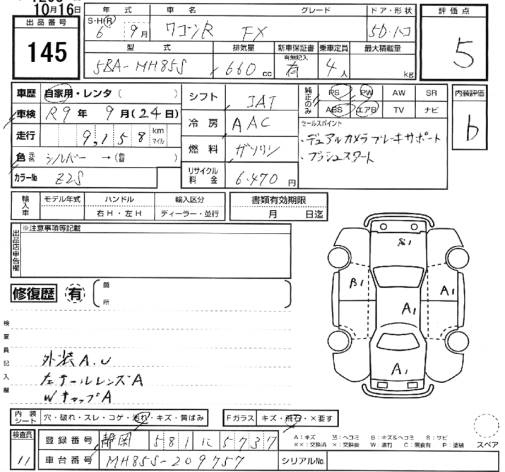 10月16日
出品番号
145
年式
S・H・R 6年 9月
車名
ワゴンR FX
グレード
ドア・形状
5D・ハコ
評価点
5
型式
5BA-MH85S
排気量
660cc
新車保証書
有無記入
有
乗車定員
4人
最大積載量
kg
車歴 自家用・レンタ( )
車検 R9年 9月(24日)
走行 9,158km
マイル
色 元色 シルバー → (替 )
カラーNo Z2S
シフト IAT
冷房 AAC
燃料 ガソリン
リサイクル料金 6.470円
純正のみ
PS PW AW SR
ABS エアB TV ナビ
セールスポイント
・デュアルカメラブレーキサポート
・プッシュスタート
内装評価
b
輸入車
モデル年式
ハンドル
右H・左H
輸入区分
ディーラー・並行
書類有効期限
月 日迄
出品店申告欄
※注意事項等記載
修復歴 有
箇所
検査員記入欄
外装A.U
左テールレンズA
WキャップA
S1
B1
A1
A1
A1
内装シート
穴・破れ・スレ・コゲ・汚れ・キズ・黄ばみ
Fガラス キズ・飛石・×要す
スペア
検査員
11
登録番号 静岡 581 に 5737
車台番号 MH85S-209757
シリアルNo.